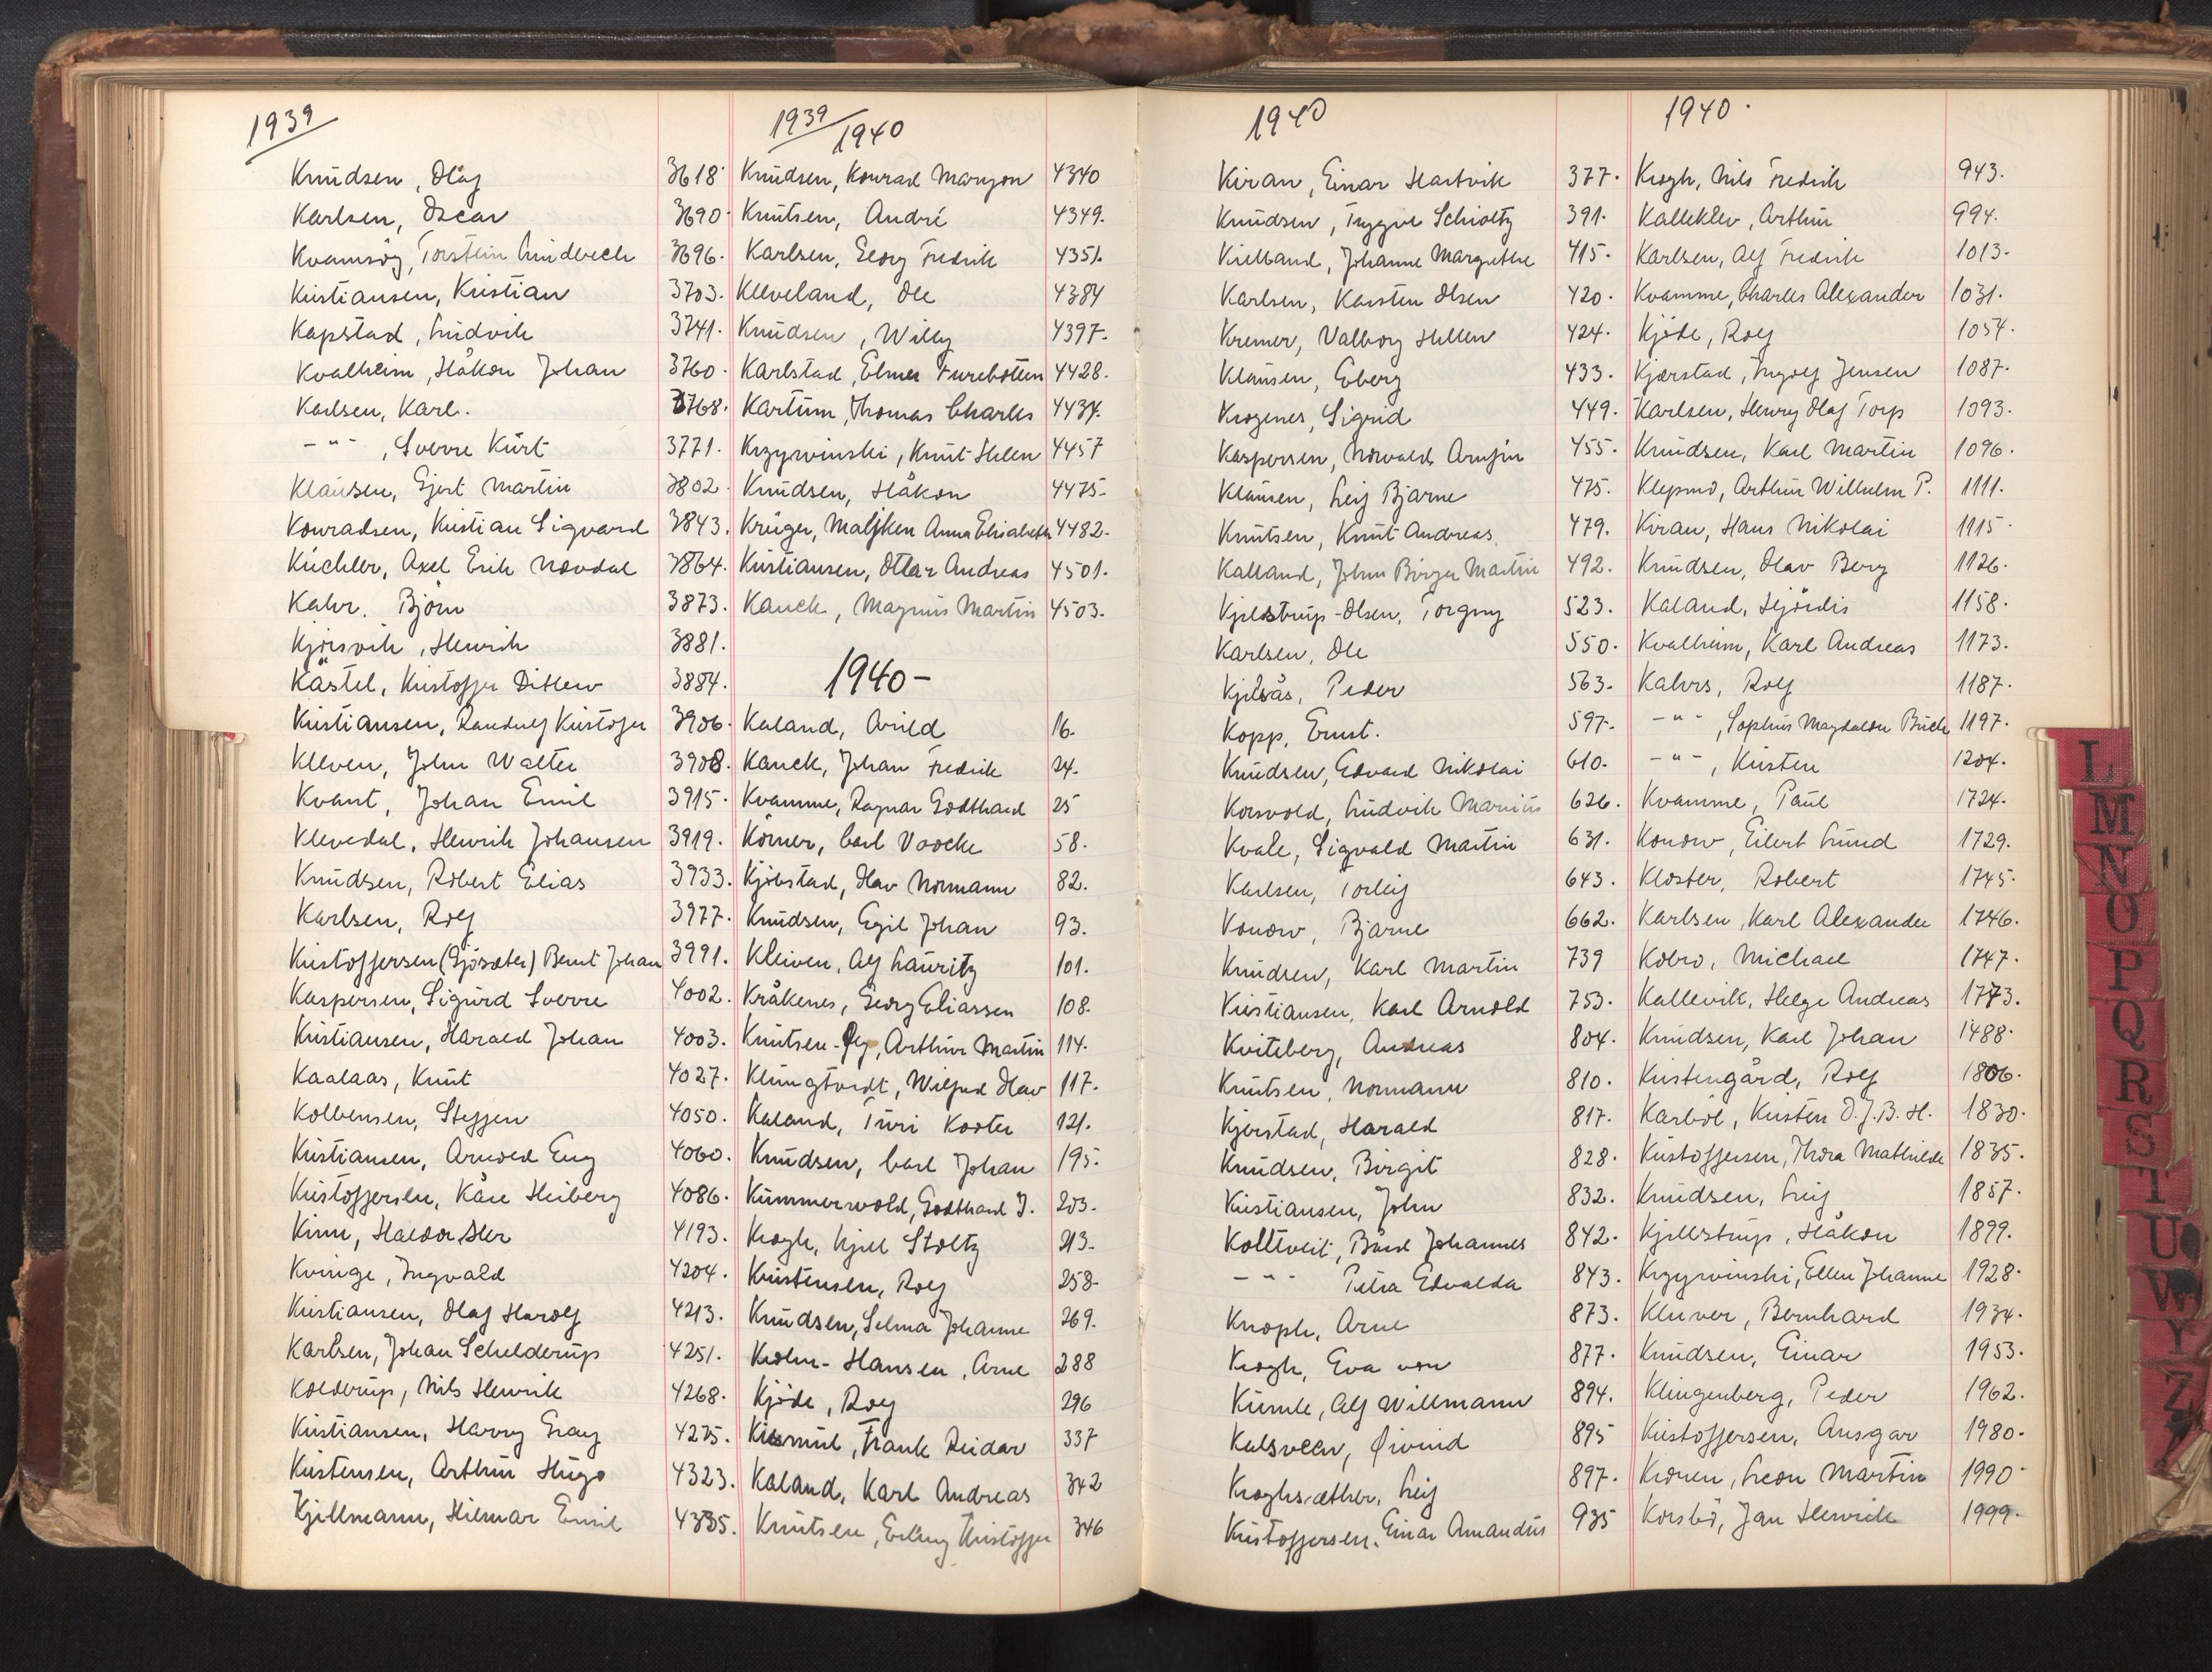 1939
Knudsen, Olaf 3618.
Karlsen, Oscar 3690.
Kvamsøy, Torstein 3696.
Kristiansen, Kristian 3703.
Kapstad, Ludvik 3741.
Kvalheim, Håkon Johan 3760.
Karlsen, Karl. 3768.
- " - , Sverre Kurt 3771.
Klausen, Gjert Martin 3802.
Konradsen, Kristian Sigvard 3843.
Küchler, Axel Erik Nordal 3864.
Kahr. Bjørn 3873.
Kjørsvik, Henrik 3881.
Kästel, Kristoffer Ditlew 3884.
Kristiansen, Randulf Kristofer 3906.
Kleven, John Walter 3908.
Kvant, Johan Emil 3915.
Klevedal, Henrik Johansen 3919.
Knudsen, Robert Elias 3933.
Karlsen, Rolf 3977.
Kristoffersen (Gjøsæter) Bernt Johan 3991.
Kaspersen, Sigurd Sverre 4002.
Kristiansen, Harald Johan 4003.
Kaalaas, Knut 4027.
Kolbensen, Steffen 4050.
Kristiansen, Arnold Eng 4060.
Kristoffersen, Kåre Heiberg 4086.
Kinn, Haldor Iler 4193.
Kvinge, Ingvald 4204.
Kristiansen, Olaf Harolf 4213.
Karlsen, Johan Schelderup 4251.
Kolderup, Nils Henrik 4268.
Kristiansen, Harry Gray 4275.
Kristensen, Arthur Hugo 4323.
Kjellmann, Hilmar Emil 4335.
1939/1940
Knudsen, Konrad Maryon 4340
Knutsen, André 4349.
Karlsen, Georg Fredrik 4351.
Kleveland, Ole 4384
Knudsen, Willy 4397.
Karlstad, Elmer Furebotten 4428.
Kartum, Thomas Charles 4434.
Krzyrvinski, Knut Helen 4457
Knudsen, Håkon 4475.
Krüger, Malfken Anna Elisabeth 4482.
Kristiansen, Ottar Andreas 4501.
Kauck, Magnus Martin 4503.
1940 -
Kaland, Arild 16.
Kauck, Johan Fredrik 24.
Kvamme, Ragnar Godthard 25
Körner, Carl Voocke 58.
Kjøbstad, Olav Normann 82.
Knudsen, Egil Johan 93.
Kleiven, Alf Lauritz 101.
Kråkenes, Georg Eliassen 108.
Knutsen-Øy, Arthur Martin 114.
Klungtvedt, Wilfred Olav 117.
Kaland, Turi Koster 121.
Knudsen, Carl Johan 195.
Kummervold, Godthard J. 203.
Krogh, Kjell Stoltz 213.
Kristensen, Rolf 258.
Knudsen, Selma Johanne 269.
Krohn-Hansen, Arne 288
Kjøde, Rolf 296
Kismul, Frank Reidar 337
Kaland, Karl Andreas 342
Knutsen, Erling Kristoffer 346
1940
Kiran, Einar Hartvik 377.
Knudsen, Trygve Schiøtz 391.
Kielland, Johanne Margrethe 415.
Karlsen, Karsten Olsen 420.
Kremer, Valborg Hellen 424.
Klausen, Eberg 433.
Krogenes, Sigrid 449.
Kaspersen, Norvald Arnfin 455.
Klausen, Leif Bjarne 475.
Knutsen, Knut Andreas 479.
Kalland, John Birger Martin 492.
Kjelstrup-Olsen, Torgny 523.
Karlsen, Ole 550.
Kjilsås, Peder 563.
Kopp, Ernst. 597.
Knudsen, Edvard Nikolai 610.
Korsvold, Ludvik Marius 626.
Kvale, Sigvald Martin 631.
Karlsen, Torleif 643.
Konow, Bjarne 662.
Knudsen, Karl Martin 739
Kristiansen, Karl Arnold 753.
Kviteberg, Andreas 804.
Knutsen, Normann 810.
Kjerstad, Harald 817.
Knudsen, Birgit 828.
Kristiansen, John 832.
Koltveit, Bård Johannes 842.
- " - Petra Edvalda 843.
Knoph, Arne 873.
Krogh, Eva von 877.
Kumle, Alf Willmann 894.
Kalsveen, Øivind 895
Kroghsæther, Leif 897.
Kristoffersen. Einar Amandus 935
1940.
Krogh, Nils Fredrik 943.
Kalleklev, Arthur 994.
Karlsen, Alf Fredrik 1013.
Kvamme, Charles Alexander 1031.
Kjøde, Rolf 1054.
Kjærstad, Ingolf Jensen 1087.
Karlsen, Henry Olaf Torp 1093.
Knudsen, Karl Martin 1096.
Klepmo, Arthur Wilhelm P. 1111.
Kiran, Hans Nikolai 1115.
Knudsen, Olav Berg 1126.
Kaland, Hjørdis 1158.
Kvalheim, Karl Andreas 1173.
Kahrs, Rolf 1187.
- " - , Sophus Magdalon Buch 1197.
- " - , Kirsten 1204.
Kvamme, Paul 1724.
Konow, Eilert Lund 1729.
Kloster, Robert 1745.
Karlsen, Karl Alexander 1746.
Kobro, Michael 1747.
Kallevik, Helge Andreas 1773.
Knudsen, Karl Johan 1488.
Kristengård, Rolf 1806.
Karbøl, Kirsten O.J.B.H. 1830.
Kristoffersen, Thora Mathilde 1835.
Knudsen, Leif 1857.
Kjellstrup, Håkon 1899.
Krzyrvinski, Ellen Johanne 1928.
Kluver, Bernhard 1934.
Knudsen, Einar 1953.
Klingenberg, Peder 1962.
Kristoffersen, Ansgar 1980.
Kronen, Leon Martin 1990
Korsbø, Jan Henrik 1999.
L
M
N
O
P
Q
R
S
T
U
W
Y
Z